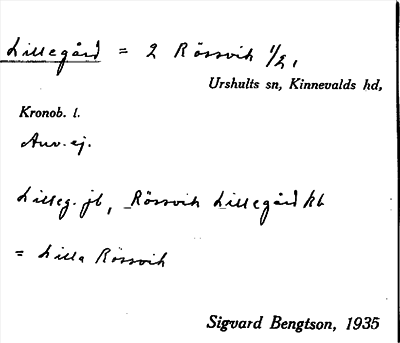 Lillegård = 2 Rössvik 1/2,
Urshults sn, Kinnevalds hd,
Kronob. l.
Anv. ej.
Lilleg. jb, Rössvik Lillegård kb
= Lilla Rössvik
Sigvard Bengtson, 1935